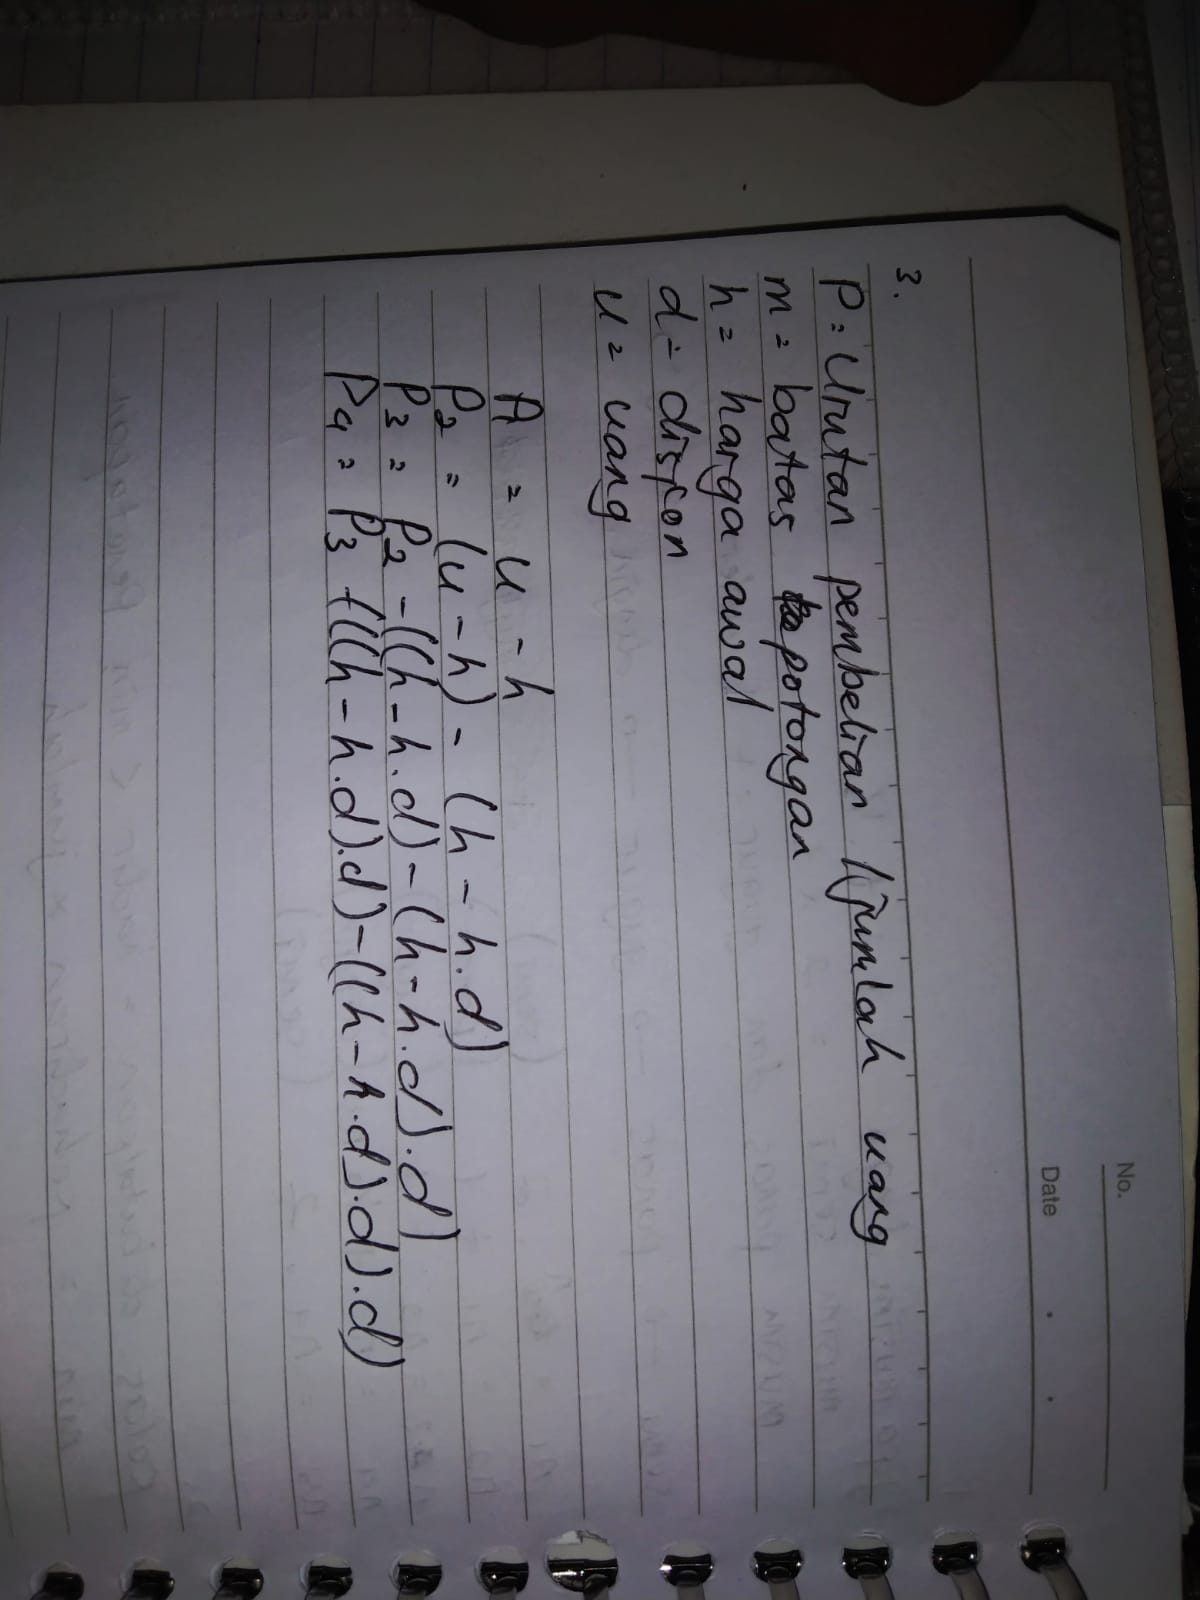 No.
Date
3.
P = Urutan pembelian / jumlah uang
m = batas potongan
h = harga awal
d = diskon
u = uang
A = u - h
P2 = (u - h) - (h - h.d)
P3 = P2 - ((h - h.d) - (h - h.d).d)
P4 = P3 - (((h - h.d).d) - ((h - h.d).d).d)